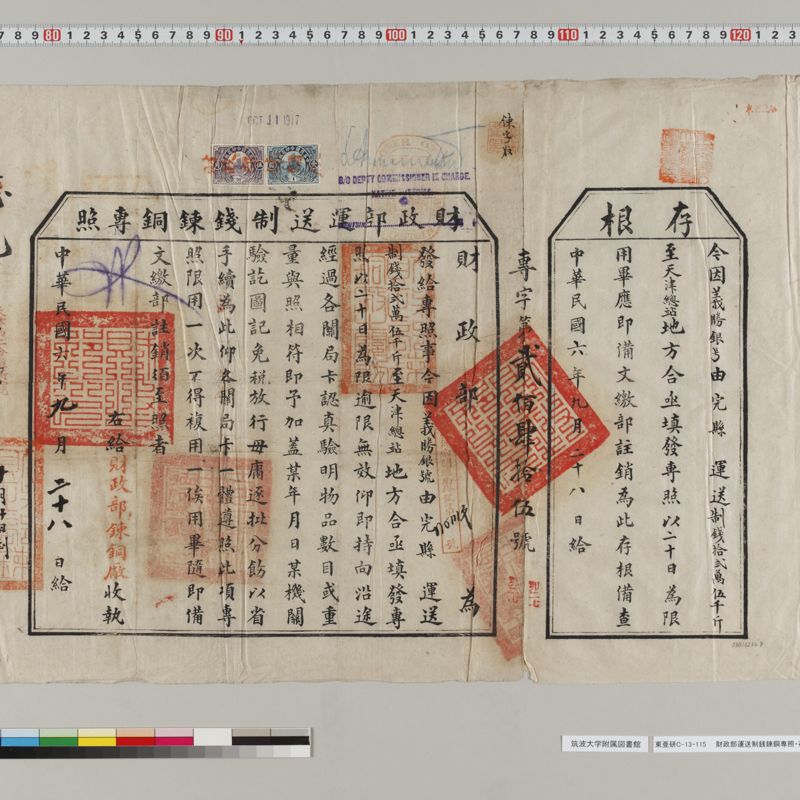 存根
今因義勝銀号由完縣 運送制錢拾貳萬伍千斤
至天津總站地方合亟填發專照以二十日為限
用畢應即備文繳部註銷為此存根備查
中華民國六年九月二十八日給
專字第貳佰肆拾伍號
財政部運送制錢鍊銅專照
財政部 為
發給專照事今因義勝銀號由完縣 運送
制錢拾貳萬伍千斤至天津總站地方合亟填發專
照以二十日為限逾限無效仰即持向沿途
經過各關局卡認真驗明物品數目或重
量與照相符即予加蓋某年月日某機關
驗訖圖記免稅放行毋庸逐批分飭以省
手續為此仰各關局卡一體遵照此項專
照限用一次不得複用一俟用畢隨即備
文繳部註銷須至照者
右給財政部鍊銅廠收執
中華民國六年九月二十八日給
OCT 11 1917
B/O DEPTY COMMISSIONER IN CHARGE.
筑波大学附属図書館
東亜研C-13-115 財政部運送制銭錬銅専照・